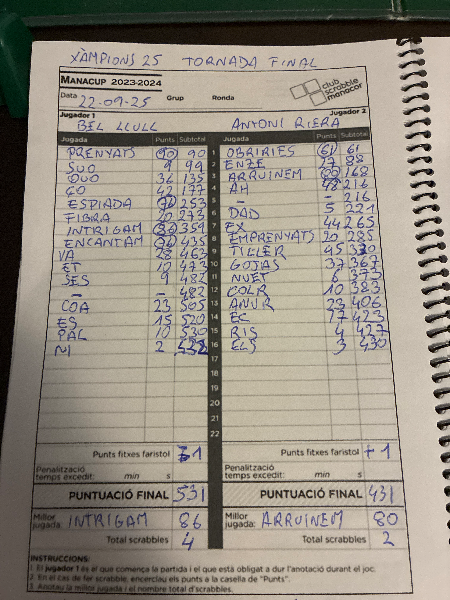 XÀMPIONS 25 TORNADA FINAL
MANACUP 2023-2024
club scrabble manacor
Data 22-09-25 Grup Ronda
Jugador 1 Jugador 2
BEL LLULL ANTONI RIERA
Jugada Punts Subtotal Jugada Punts Subtotal
PRENYATS 90 90 1 OBRIRIES 61 61
SUO 9 99 2 ENZE 27 88
DUO 36 135 3 ARRUINEM 80 168
ÇO 42 177 4 AH 48 216
ESPIADA 76 253 5 - - 216
FIBRA 20 273 6 DAD 5 221
INTRIGAM 86 359 7 EX 44 265
ENCANTAM 76 435 8 EMPRENYATS 20 285
VA 28 463 9 TILLER 45 330
ET 10 473 10 GOJAS 37 367
SES 9 482 11 NUET 6 373
- - 482 12 COLR 10 383
COA 23 505 13 ANUR 23 406
ES 15 520 14 EC 17 423
PAL 10 530 15 RIS 4 427
NI 2 532 16 ELS 3 430
17
18
19
20
21
22
Punts fitxes faristol -1 Punts fitxes faristol +1
Penalització temps excedit: min s Penalització temps excedit: min s
PUNTUACIÓ FINAL 531 PUNTUACIÓ FINAL 431
Millor jugada: INTRIGAM 86 Millor jugada: ARRUINEM 80
Total scrabbles 4 Total scrabbles 2
INSTRUCCIONS:
1. El jugador 1 és el que comença la partida i el que està obligat a dur l'anotació durant el joc.
2. En el cas de fer scrabble, encerclau els punts a la casella de "Punts".
3. Anotau la millor jugada i el nombre total d'scrabbles.